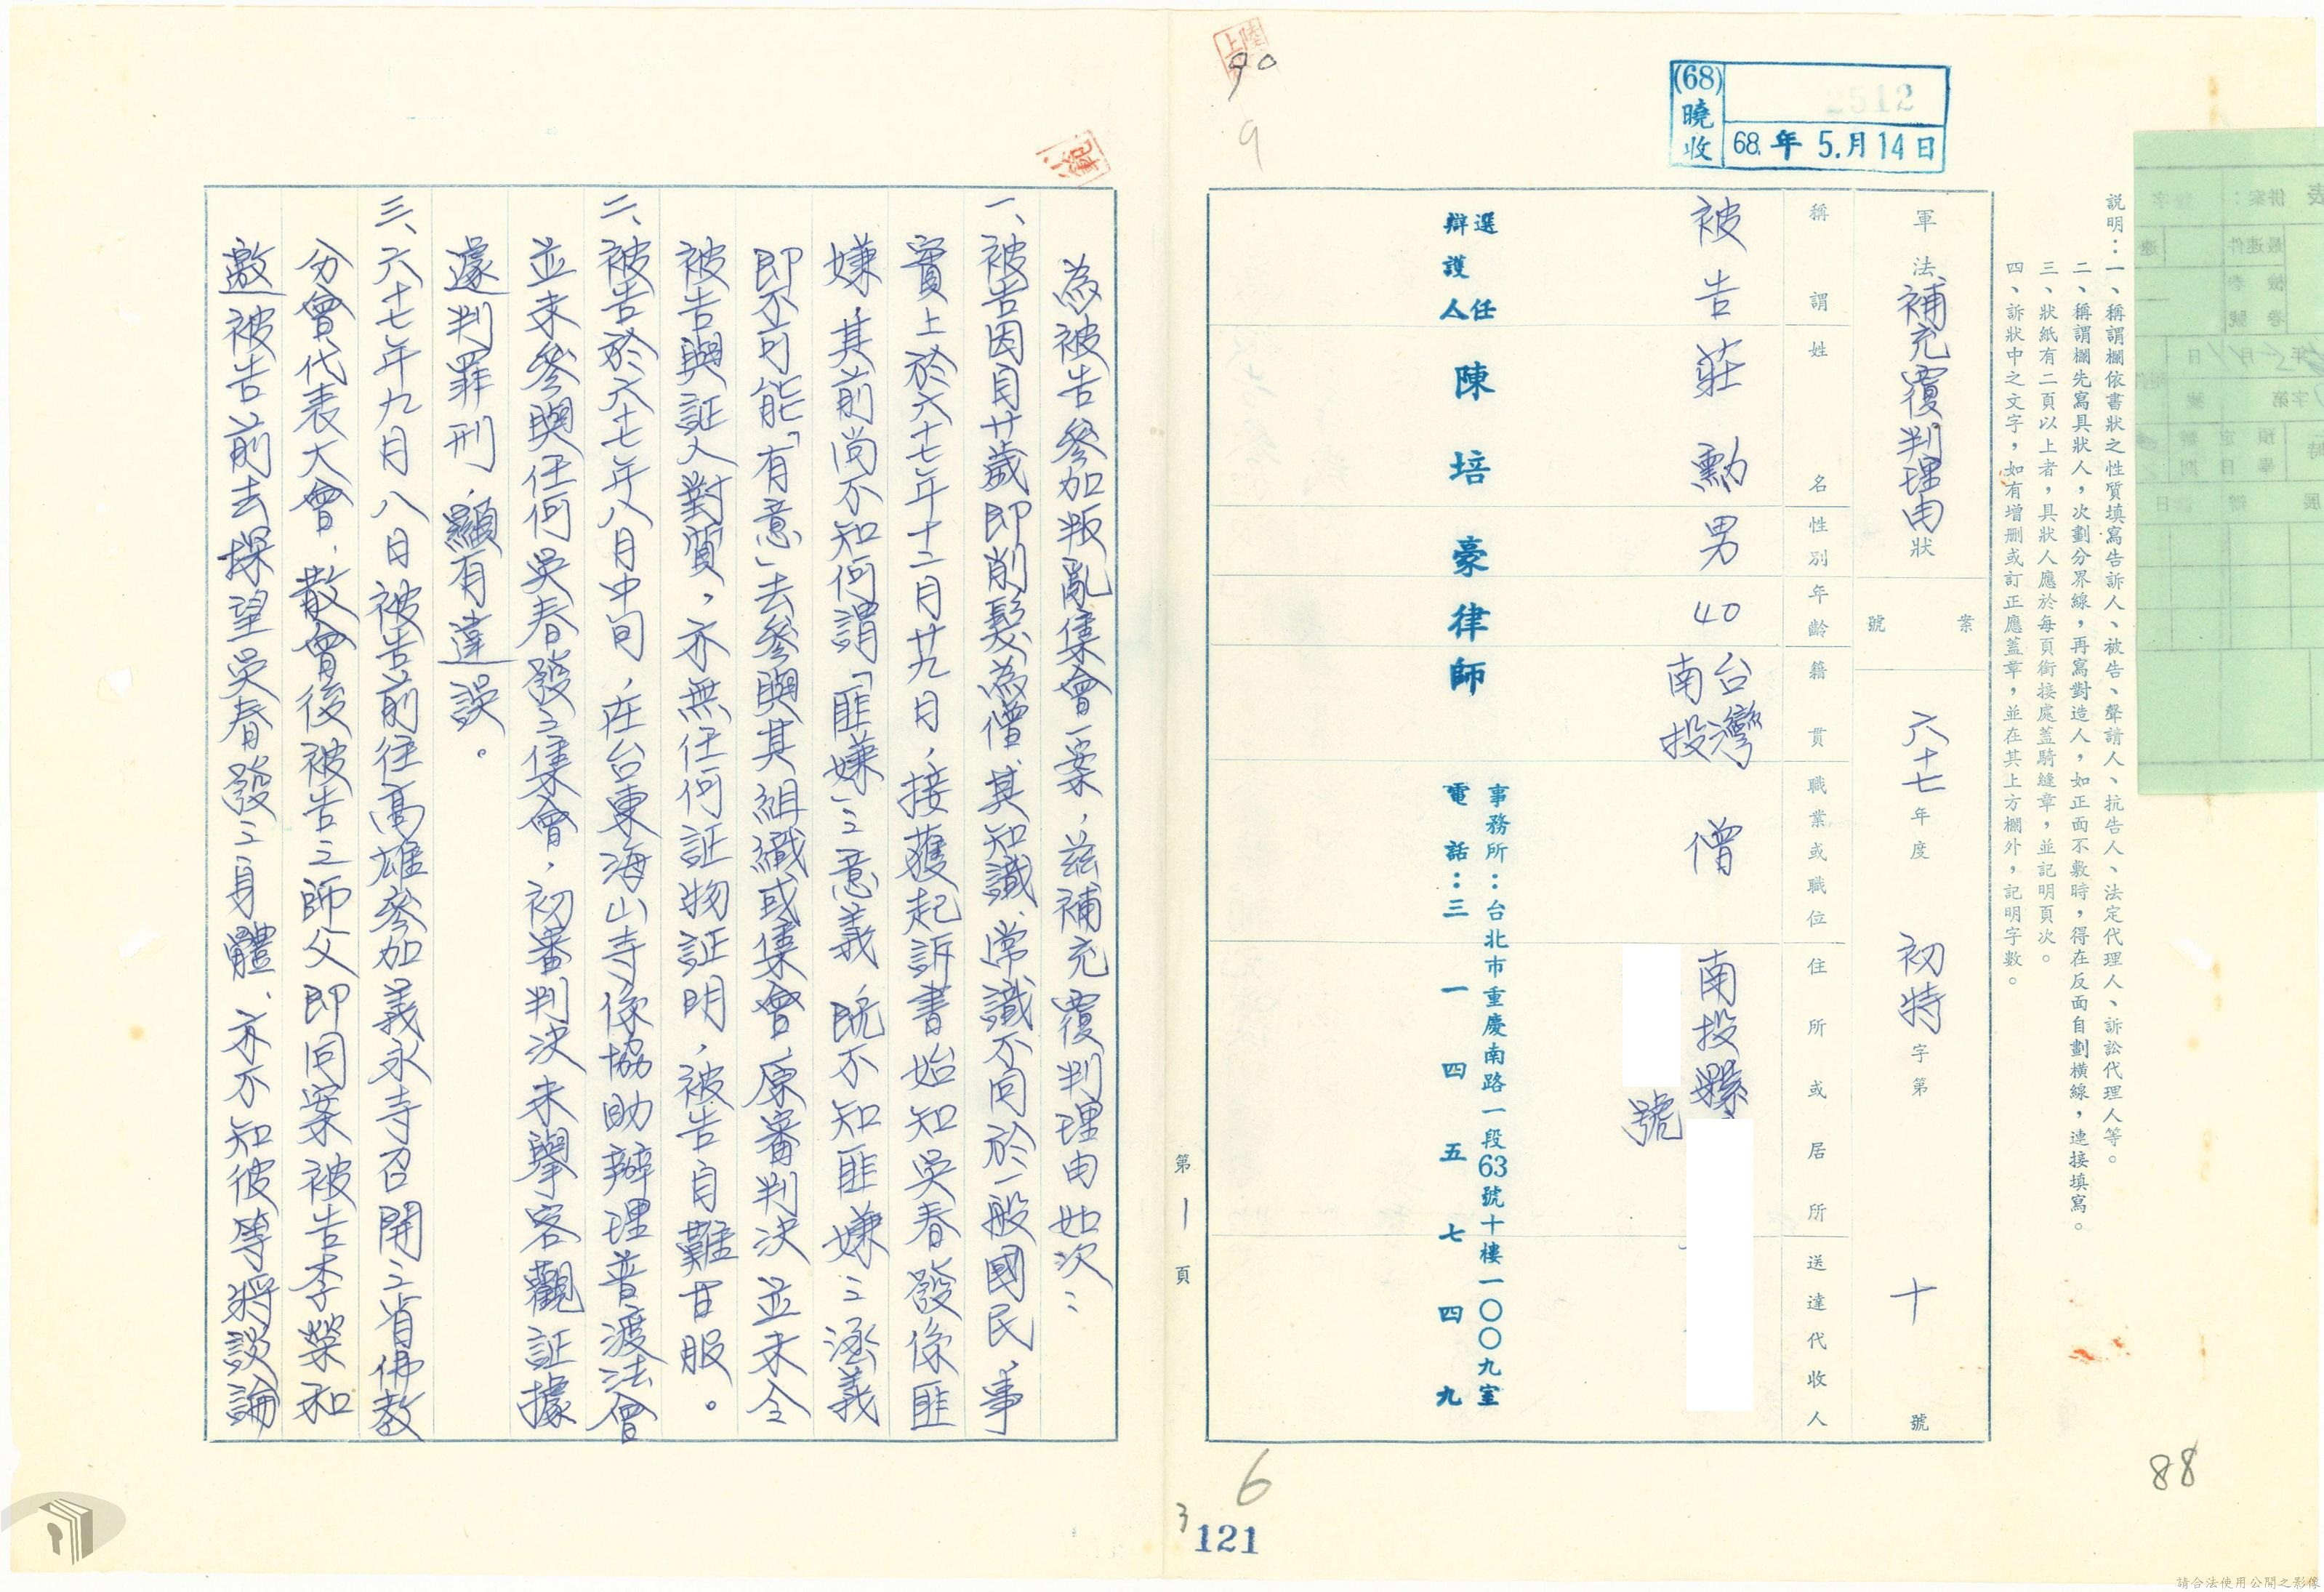 (68)
曉
收
2512
68.年5.月14日
說明：一、稱謂欄依書狀之性質填寫告訴人、被告、聲請人、抗告人、法定代理人、訴訟代理人等。
二、稱謂欄先寫具狀人，次劃分界線，再寫對造人，如正面不敷時，得在反面自劃橫線，連接填寫。
三、狀紙有二頁以上者，具狀人應於每頁銜接處蓋騎縫章，並記明頁次。
四、訴狀中之文字，如有增刪或訂正應蓋章，並在其上方欄外，記明字數。
軍法補充覆判理由狀
案號
六十七年度初特字第十號
稱謂
姓名
性別
年齡
籍貫
職業或職位
住所或居所
送達代收人
被告
莊勳
男
40
台灣
南投
僧
南投縣
號
選任
辯護人
陳培豪律師
事務所：台北市重慶南路一段63號十樓一〇〇九室
電話：三一四五七四九
第1頁
90
9
6
3
121
88
為被告參加叛亂集會一案，茲補充覆判理由如次：
一、被告因自廿歲即削髮為僧，其知識、常識不同於一般國民，事
實上於六十七年十二月廿九日，接獲起訴書始知吳春發係匪
嫌，其前尚不知何謂「匪嫌」之意義，既不知匪嫌之涵義
即不可能「有意」去參與其組織或集會，原審判決並未令
被告與証人對質，亦無任何証物証明，被告自難甘服。
二、被告於六十七年八月中旬，在台東海山寺係協助辦理普渡法會
並未參與任何吳春發之集會，初審判決未舉客觀証據
遽判罪刑，顯有違誤。
三、六十七年九月八日被告前往高雄參加義永寺召開之省佛教
分會代表大會，散會後被告之師父即同案被告李榮和
邀被告前去探望吳春發之身體，亦不知彼等將談論
請合法使用公開之影像